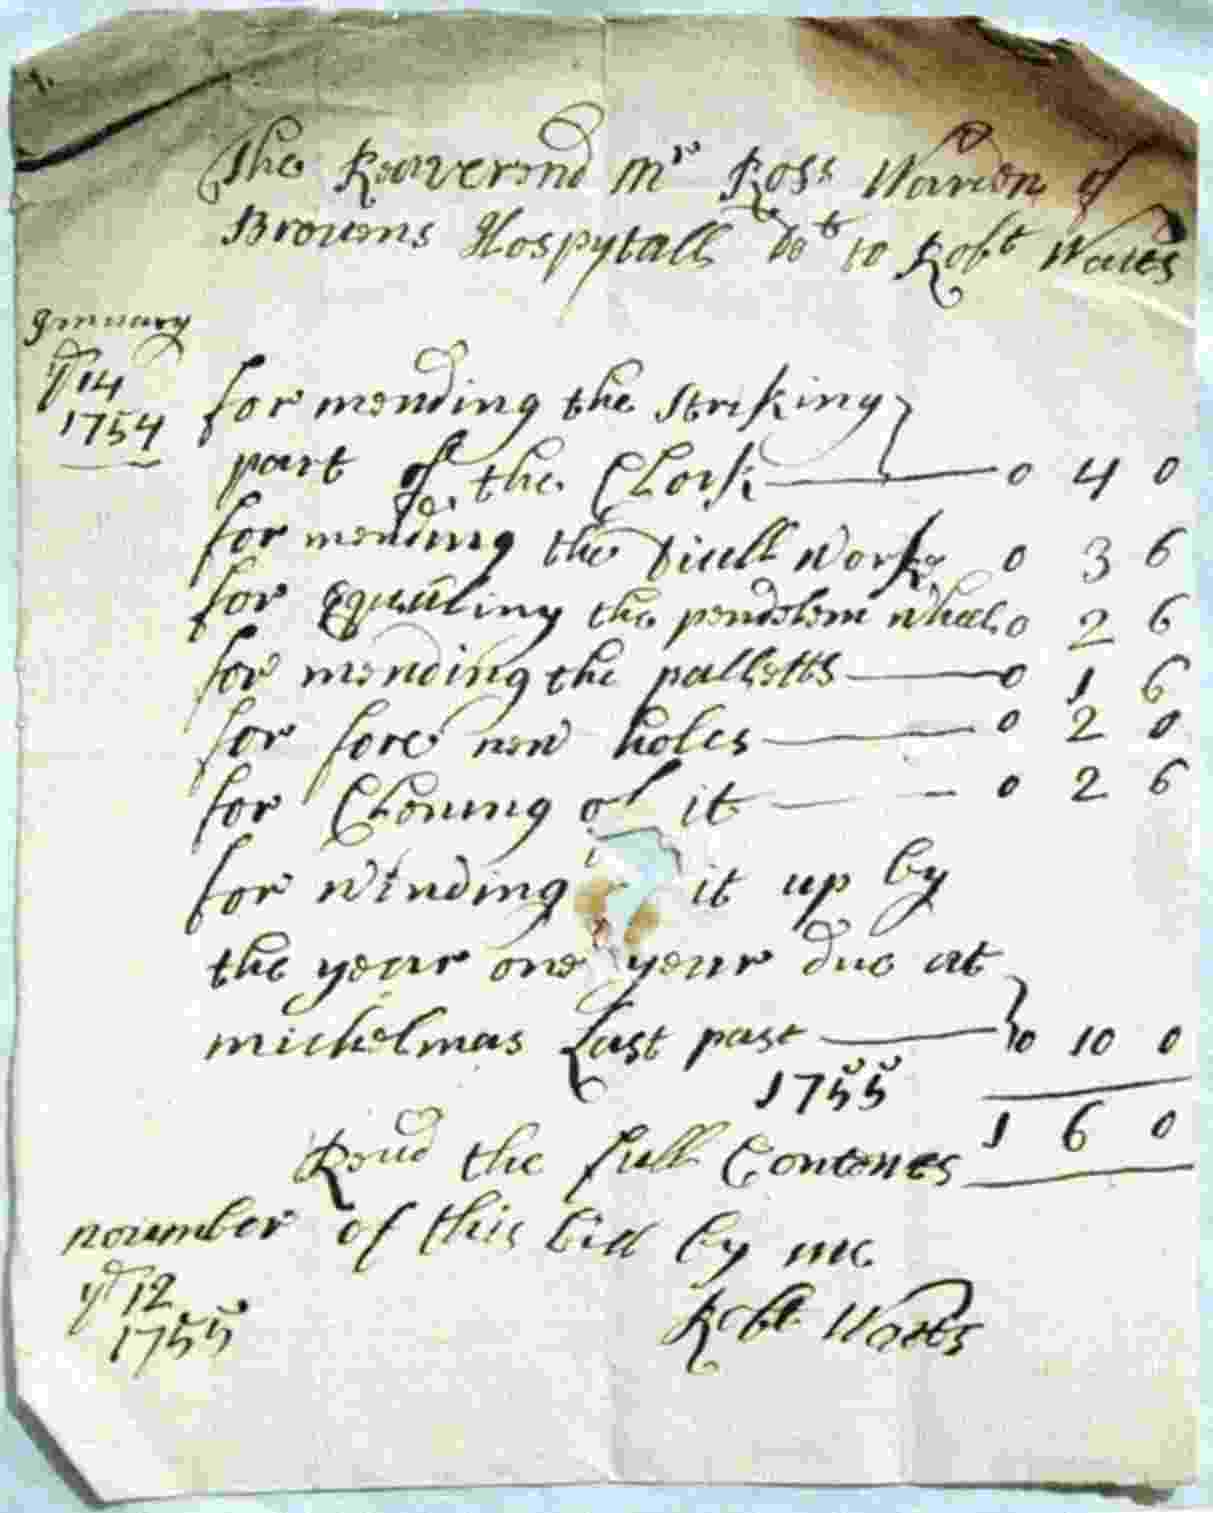 The Reaverend Mr Ross Warden of
Browns Hospytall Dt to Robt Wattes
January
ye 14
1754
for mending the striking
part of the Clock 0 4 0
for mending the Diall Worke 0 3 6
for Equaling the pendolem wheel 0 2 6
for mending the palletts 0 1 6
for fore new holes 0 2 0
for Clening of it 0 2 6
for winding it up by
the year one year due at
mickelmas Last past 0 10 0
1755
1 6 0
Reud the full Contents
november of this bill by me
ye 12
1755
Robt Wattes